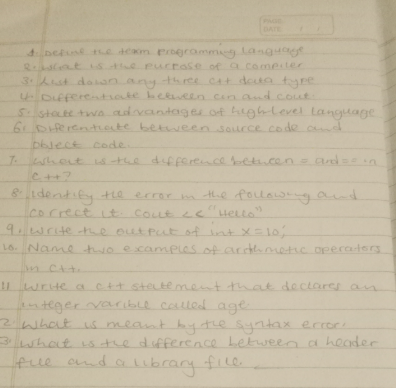 PAGE:
DATE: / /
1. Define the term programming Language
2. What is the purpose of a compiler
3. List down any three c++ data type
4. Differentiate between cin and cout
5. State two advantages of high-level Language
6. Differentiate between source code and
object code.
7. What is the difference between = and == in
c++?
8. Identify the error in the following and
correct it cout << "Hello"
9. Write the output of int x = 10;
10. Name two examples of arithmetic operators
in C++.
11 Write a c++ statement that declares an
integer varible called age.
2. What is meant by the syntax error.
3. What is the difference between a header
file and a library file.